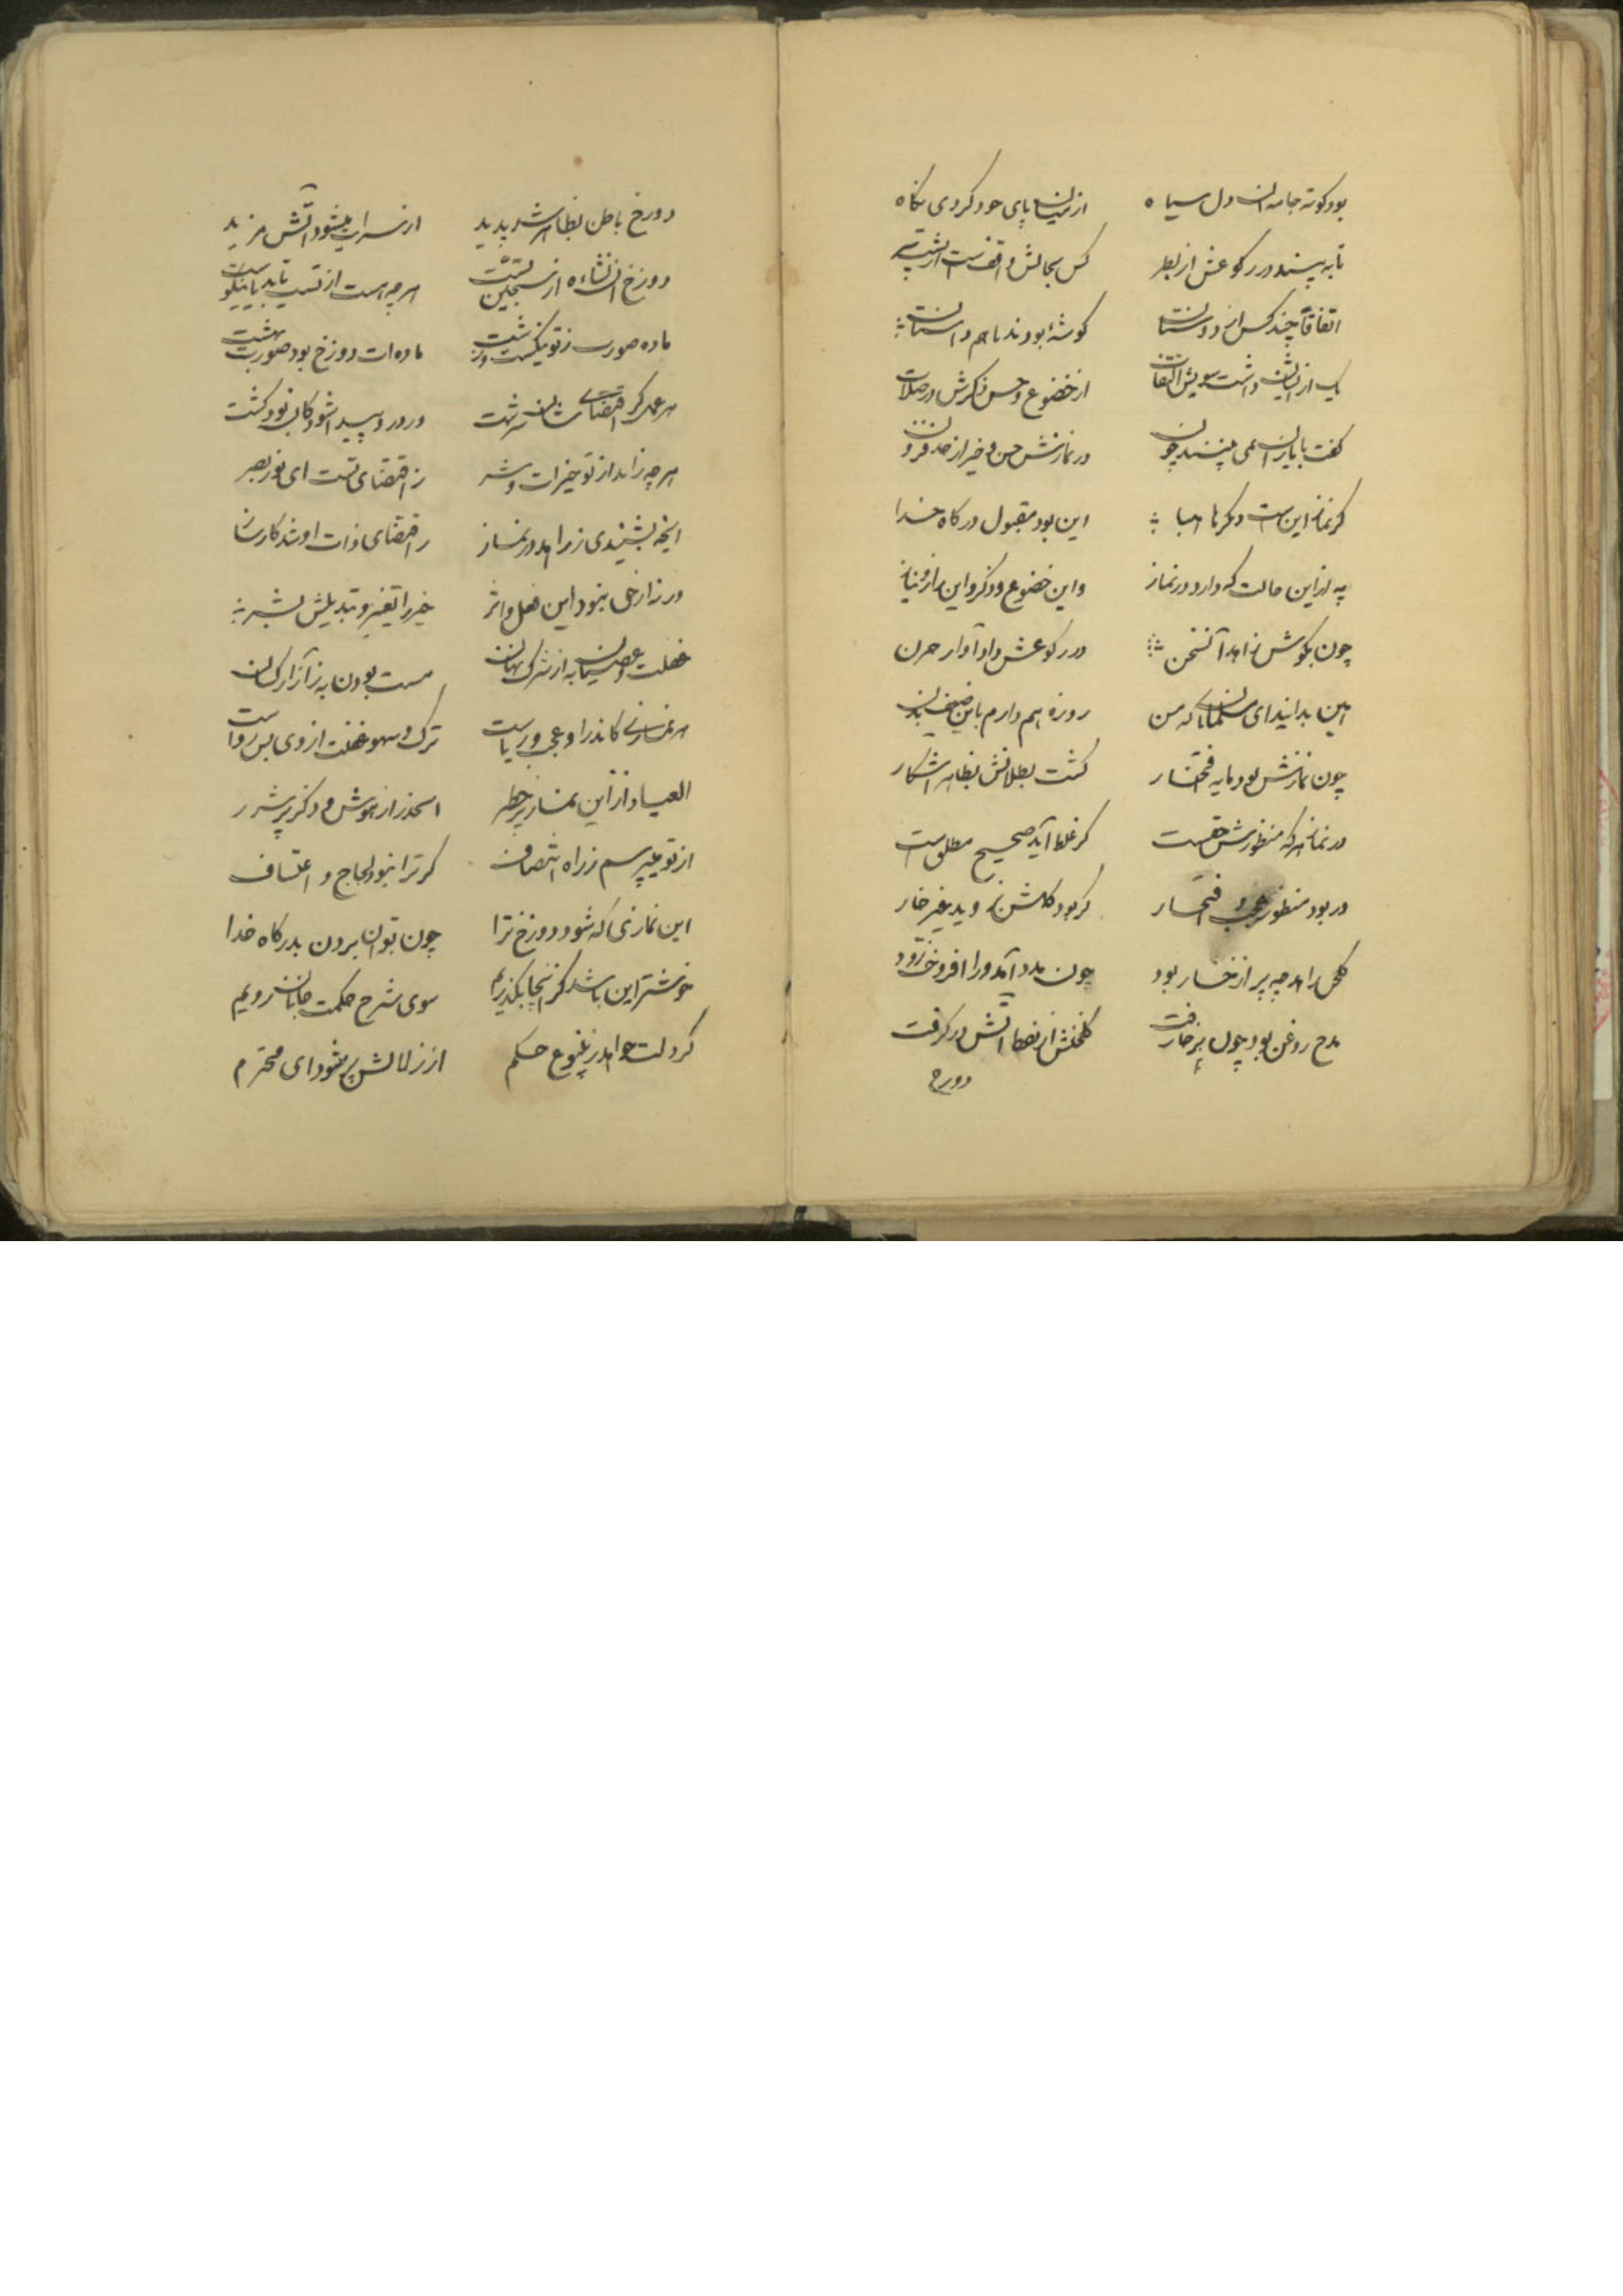 بود کوته جامه آن دل سیاه از میان پای خود کردی نگاه
تا به بیند در رکوعش از نظر کس بحالش واقفست از پشت سر
اتفاقاً چند کس از دوستان گوشهٔ بودند با هم داستان
یک از ایشان داشت سویش التفات از خضوع و حسن ذکرش در صلات
گفت با یاران همی بینید چون در نمازش حسن و خیر از حد فزون
گر نماز این است دیگرها هبا این بود مقبول درگاه خدا
به از این حالت که دارد در نماز واین خضوع و ذکر و این راز و نیاز
چون بگوش زاهد آمد آن سخن در رکوعش داد آواز حزن
این بدانید ای مسلمانان که من روزه هم دارم باین ضعف بدن
چون نمازش بود مایه افتخار گشت بطلانش بظاهر آشکار
در نماز هر که منظورش حقست گر غلط آید صحیح مطلق است
ور بود منظور عجب و افتخار گر بود گلشن نروید غیر خار
گلخن زاهد چه پر از خار بود چون مدد آمد ورا افروخت زود
مدح روغن بود چون بر خار ریخت گلخنش از نفط آتش در گرفت
دوزخ
دوزخ باطن بظاهر شد پدید از شرابت میشود آتش مزید
دوزخ از نشاءه از سجین تست هر چه هست از تست باید با تو
ماده صورت ز تو نیکست و زشت ماده‌ات دوزخ بود صورت بهشت
هر عمل کز اقتضای شان سرشت در درو پیدا شود کان بود کشت
هر چه زاید از تو خیرات و شر ز اقتضای تست ای نور بصر
اینچه بشنیدی ز زاهد در نماز ز اقتضای ذات او شد کارساز
ور ز ارحی نبود این فعل و اثر خیر را تغییر و تبدیلش بشر
غفلت و عصیان به از شرک نهان مست بودن به ز آزار کسان
هر نمازی کاندر او عجب و ریاست ترک و سهو و غفلت از وی بس رواست
العیاذ از این نماز پر خطر الحذر از هوش و ذکر پر شرر
از تو میپرسم ز راه انتصاف گر ترا نبود لجاج و اعتساف
این نمازی که شود دوزخ ترا چون توان بردن بدرگاه خدا
خوشتر این باشد کز اینجا بگذریم سوی شرح حکمت جانان رویم
گر دلت خواهد ز ینبوع حکم از زلالش پر شود ای محترم